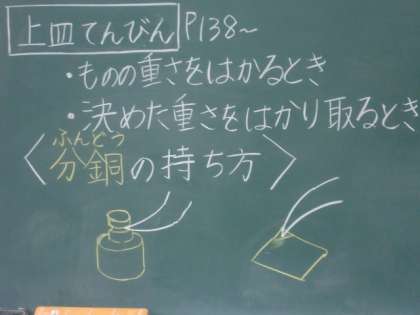 上皿てんびん P138～
・ものの重さをはかるとき
・決めた重さをはかり取るとき
ふんどう
〈分銅の持ち方〉